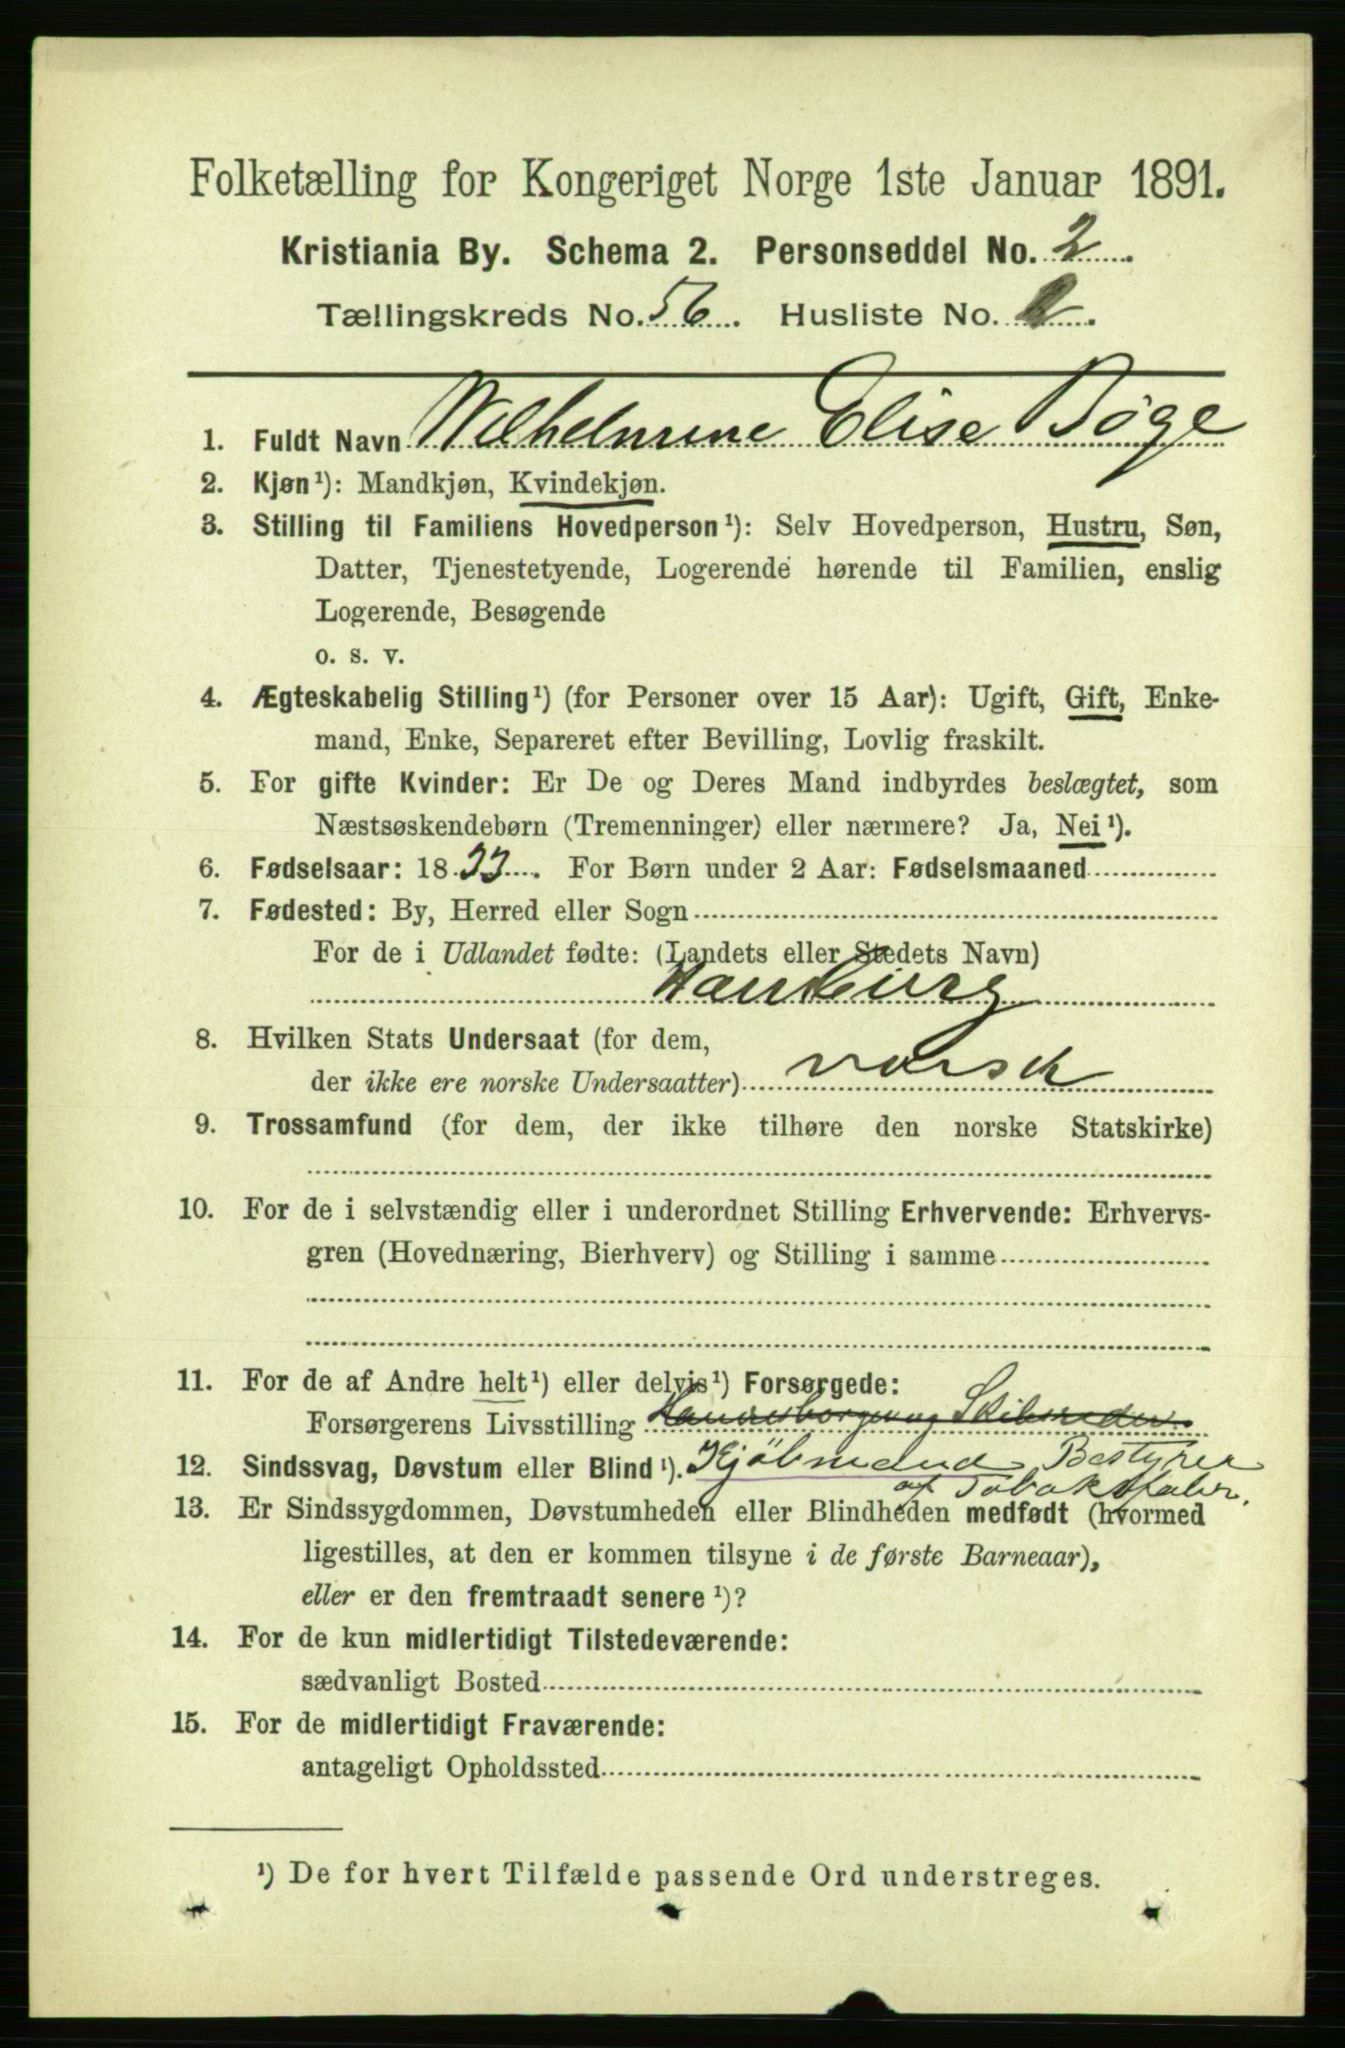 Folketælling for Kongeriget Norge 1ste Januar 1891.
Kristiania By. Schema 2. Personseddel No. 2.
Tællingskreds No. 56. Husliste No.
1. Fuldt Navn Wilhelmine Elise Bøge
2. Kjøn¹): Mandkjøn, Kvindekjøn.
3. Stilling til Familiens Hovedperson¹): Selv Hovedperson, Hustru, Søn,
Datter, Tjenestetyende, Logerende hørende til Familien, enslig
Logerende, Besøgende
o. s. v.
4. Ægteskabelig Stilling¹) (for Personer over 15 Aar): Ugift, Gift, Enke-
mand, Enke, Separeret efter Bevilling, Lovlig fraskilt.
5. For gifte Kvinder: Er De og Deres Mand indbyrdes beslægtet, som
Næstsøskendebørn (Tremenninger) eller nærmere? Ja, Nei¹).
6. Fødselsaar: 1833. For Børn under 2 Aar: Fødselsmaaned
7. Fødested: By, Herred eller Sogn
For de i Udlandet fødte: (Landets eller Stedets Navn)
Hamburg
8. Hvilken Stats Undersaat (for dem,
der ikke ere norske Undersaatter) norsk
9. Trossamfund (for dem, der ikke tilhøre den norske Statskirke)
10. For de i selvstændig eller i underordnet Stilling Erhvervende: Erhvervs-
gren (Hovednæring, Bierhverv) og Stilling i samme
11. For de af Andre helt¹) eller delvis¹) Forsørgede:
Forsørgerens Livsstilling Skibsreder
12. Sindssvag, Døvstum eller Blind¹). Kjöbmand, Bestyrer
af Tobaksfabr.
13. Er Sindssygdommen, Døvstumheden eller Blindheden medfødt (hvormed
ligestilles, at den er kommen tilsyne i de første Barneaar),
eller er den fremtraadt senere¹)?
14. For de kun midlertidigt Tilstedeværende:
sædvanligt Bosted
15. For de midlertidigt Fraværende:
antageligt Opholdssted
¹) De for hvert Tilfælde passende Ord understreges.